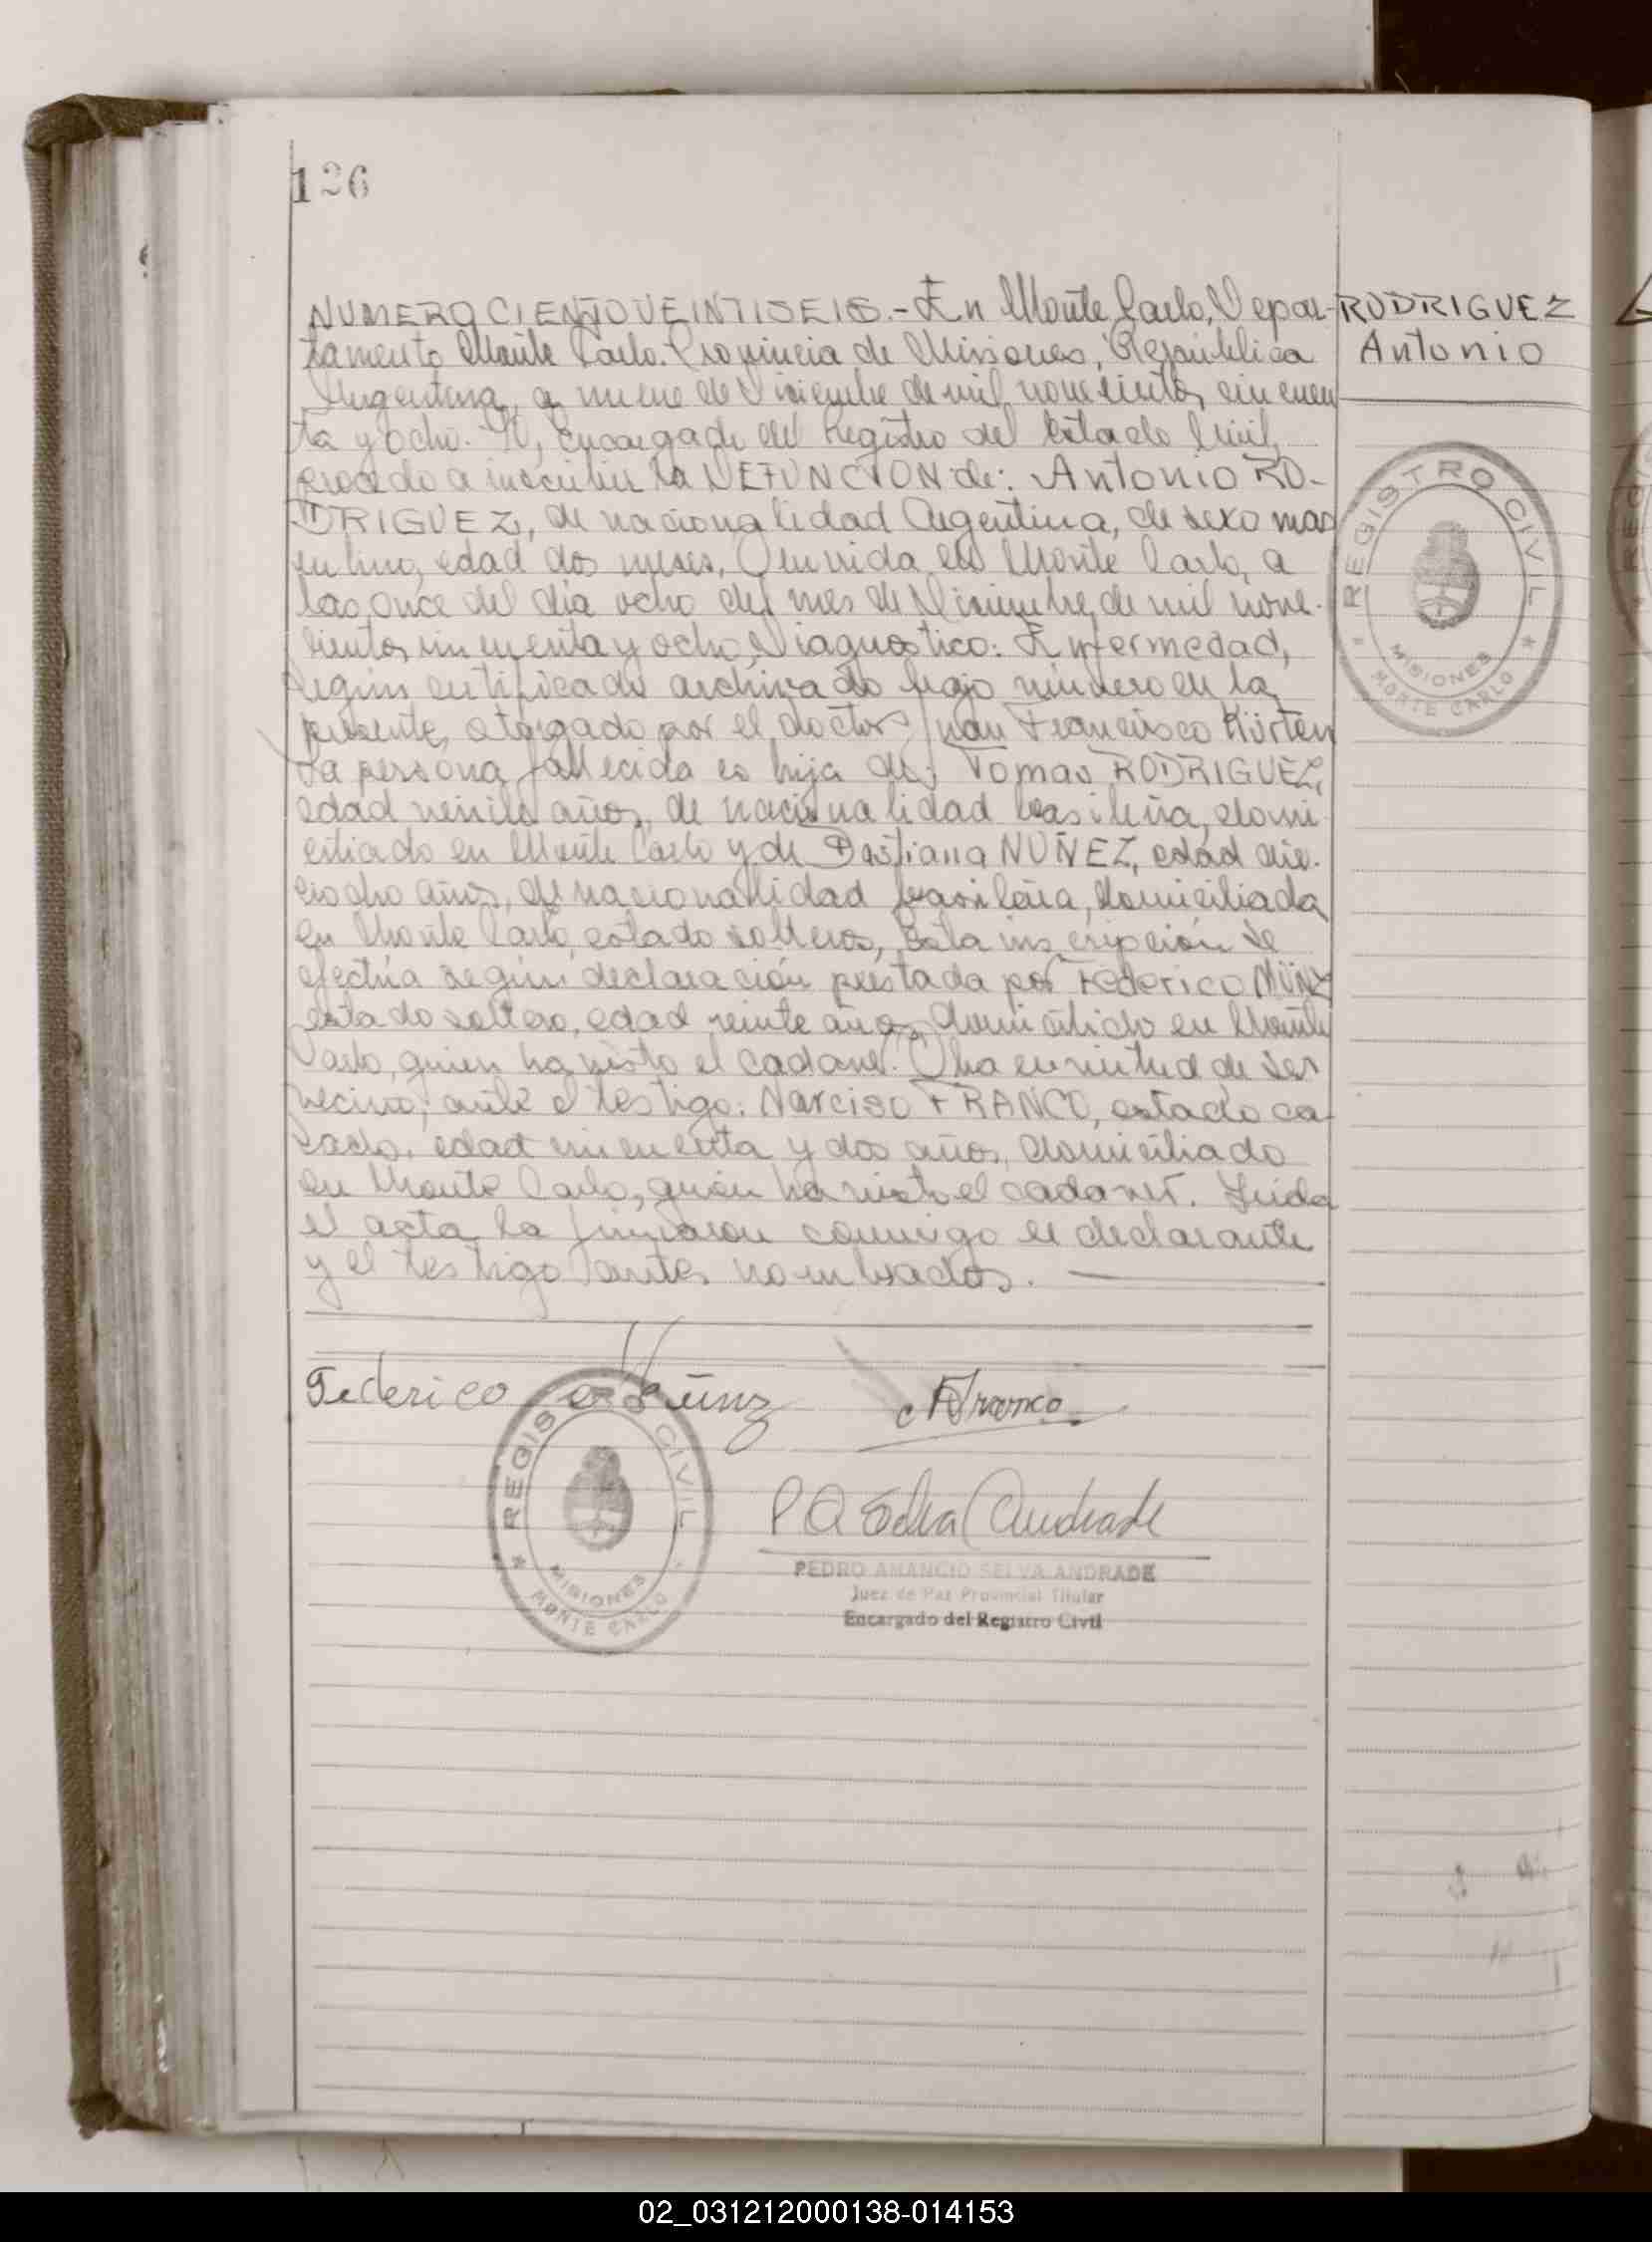 126
NUMERO CIENTO VEINTISEIS.- En Monte Carlo, Depar-
tamento Monte Carlo. Provincia de Misiones, República
Argentina, a nueve de Diciembre de mil novecientos cincuen
ta y ocho. Yo, Encargado del Registro del Estado Civil,
procedo a inscribir la DEFUNCION de: Antonio RO-
DRIGUEZ, de nacionalidad Argentina, de sexo mas
culino, edad dos meses, Ocurrida en Monte Carlo, a
las once del día ocho del mes de Diciembre, de mil nove-
cientos cincuenta y ocho, Diagnostico: Enfermedad,
según certificado archivado bajo número en la
presente, otorgado por el doctor Juan Francisco Kürten
La persona fallecida es hija de: Tomas RODRIGUEZ,
edad veinte años, de nacionalidad brasileña, domi
ciliado en Monte Carlo y de Bastiana NUÑEZ, edad die-
ciocho años, de nacionalidad brasileña, domiciliada
en Monte Carlo, estado solteros, Esta inscripción se
efectúa según declaración prestada por Federico MÜNZ
estado soltero, edad veinte años, domiciliado en Monte
Carlo, quien ha visto el cadaver. Obra en virtud de ser
vecino, ante el testigo: Narciso FRANCO, estado ca-
sado, edad cincuenta y dos años, domiciliado
en Monte Carlo, quien ha visto el cadaver. Leida
el acta la firmaron conmigo el declarante
y el testigo antes nombrados.
RODRIGUEZ
Antonio
REGISTRO CIVIL
MISIONES
* MONTE CARLO *
Federico Münz
Franco
REGISTRO CIVIL
MISIONES
* MONTE CARLO
P A Selva Andrade
PEDRO AMANCIO SELVA ANDRADE
Juez de Paz Provincial Titular
Encargado del Registro Civil
02_031212000138-014153